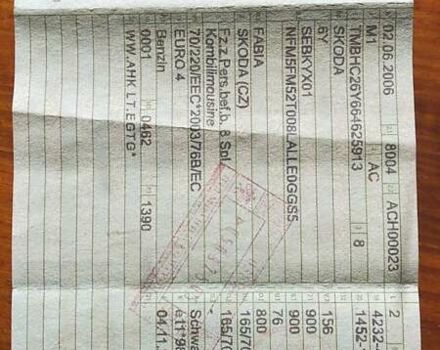 02.06.2006 8004 ACH00023 2
M1 AC 4232-
TMBHC26Y664625913 8 1452-
SKODA
6Y 156
SEBKYX01 900
NFM5FM52T008LALLE0GGS5 900
76
FABIA 800
SKODA (CZ) 165/70
Fz.z.Pers.bef.b. 8 Spl. 165/70
Kombilimousine -
70/220/EEC*2003/76B/EC Schwa
EURO 4 e11*98
Benzin 04.11.
0001 0462 1390
WW.AHK LT.EGTG*